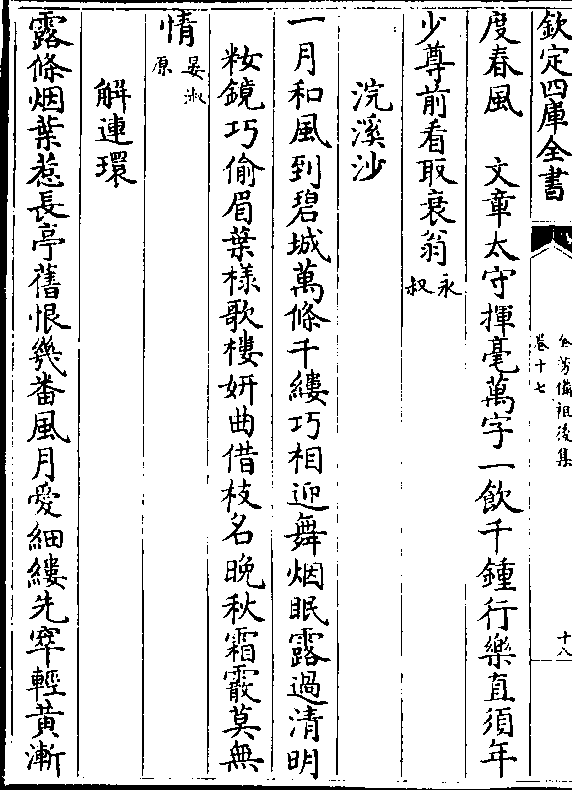 欽定四庫全書
全芳備祖後集
卷十七
十八
度春風　文章太守揮毫萬字一飲千鍾行樂直須年
少尊前看取衰翁永叔
浣溪沙
一月和風到碧城萬條千縷巧相迎舞烟眠露過清明
粧鏡巧偷眉葉様歌樓妍曲借枝名晩秋霜霰莫無
情晏淑原
解連環
露條烟葉惹長亭舊恨幾番風月愛細縷先窣輕黃漸